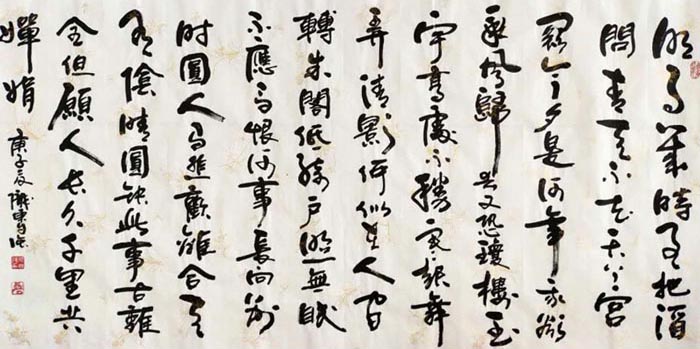 明月幾時有把酒
問青天不知天上宮
闕今夕是何年我欲
乘風歸去又恐瓊樓玉
宇高處不勝寒起舞
弄清影何似在人間
轉朱閣低綺戶照無眠
不應有恨何事長向別
時圓人有悲歡離合月
有陰晴圓缺此事古難
全但願人長久千里共
嬋娟
庚子夏